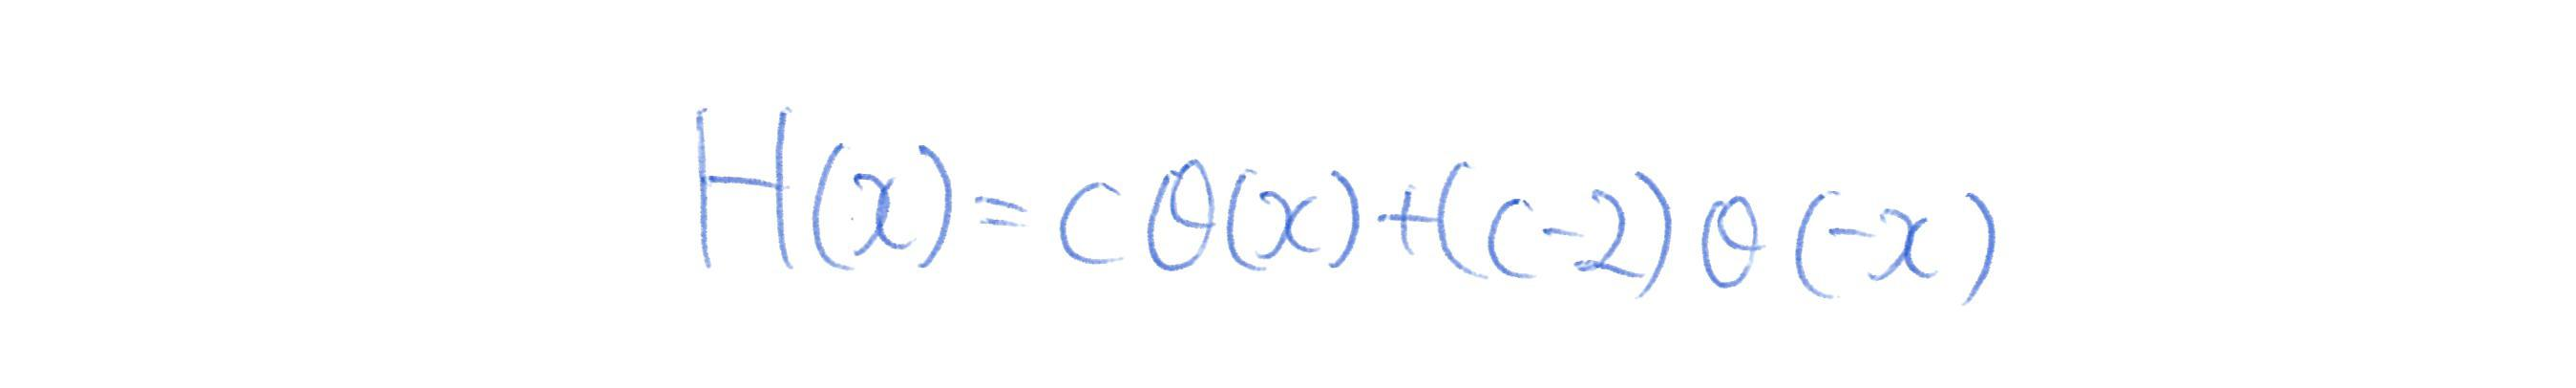 H(x) = cθ(x) + (c-2)θ(-x)